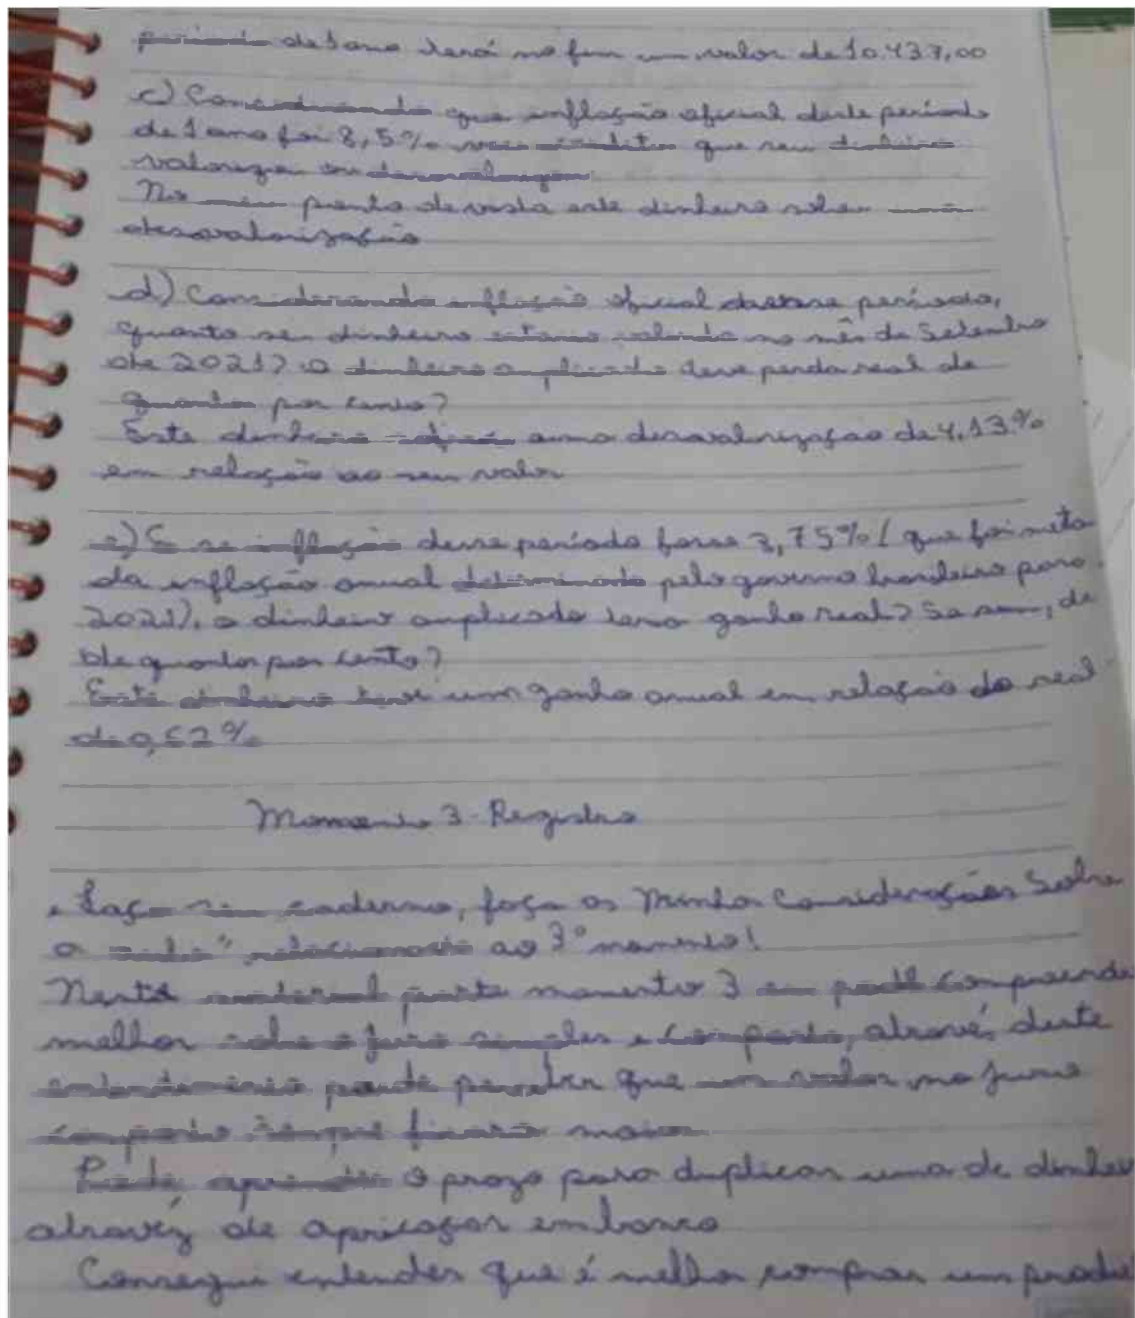 período de 1 ano terá no fim um valor de 10.437,00
c) Considerando que inflação oficial deste período
de 1 ano foi 8,5% você acredita que seu dinheiro
valorizou ou desvalorizou
No meu ponto de vista este dinheiro sofreu uma
desvalorização
d) Considerando inflação oficial desse período,
quanto seu dinheiro estaria valendo no mês de Setembro
de 2021? o dinheiro aplicado teve perda real de
quanto por cento?
Este dinheiro uma desvalorização de 4,13%
em relação ao seu valor
e) E se inflação desse período fosse 3,75% (que foi meta
da inflação anual determinada pelo governo brasileiro para
2021), o dinheiro aplicado teria ganho real? Se sim, de
de quantos por cento?
Este dinheiro teve um ganho anual em relação do real
de 0,62%
Momento 3 - Registro
Faça seu caderno, faça as Minha Considerações Sobre
o relacionado ao 3º momento!
Neste material parte momento 3 eu pude compreende
melhor sobre o juro simples e composto, através deste
entendimento pude perceber que um valor no juros
composto sempre ficará maior
Pude aprender o prazo para duplicar uma de dinhei
através de apricaçar em banco
Consegui entender que é melhor comprar um produ